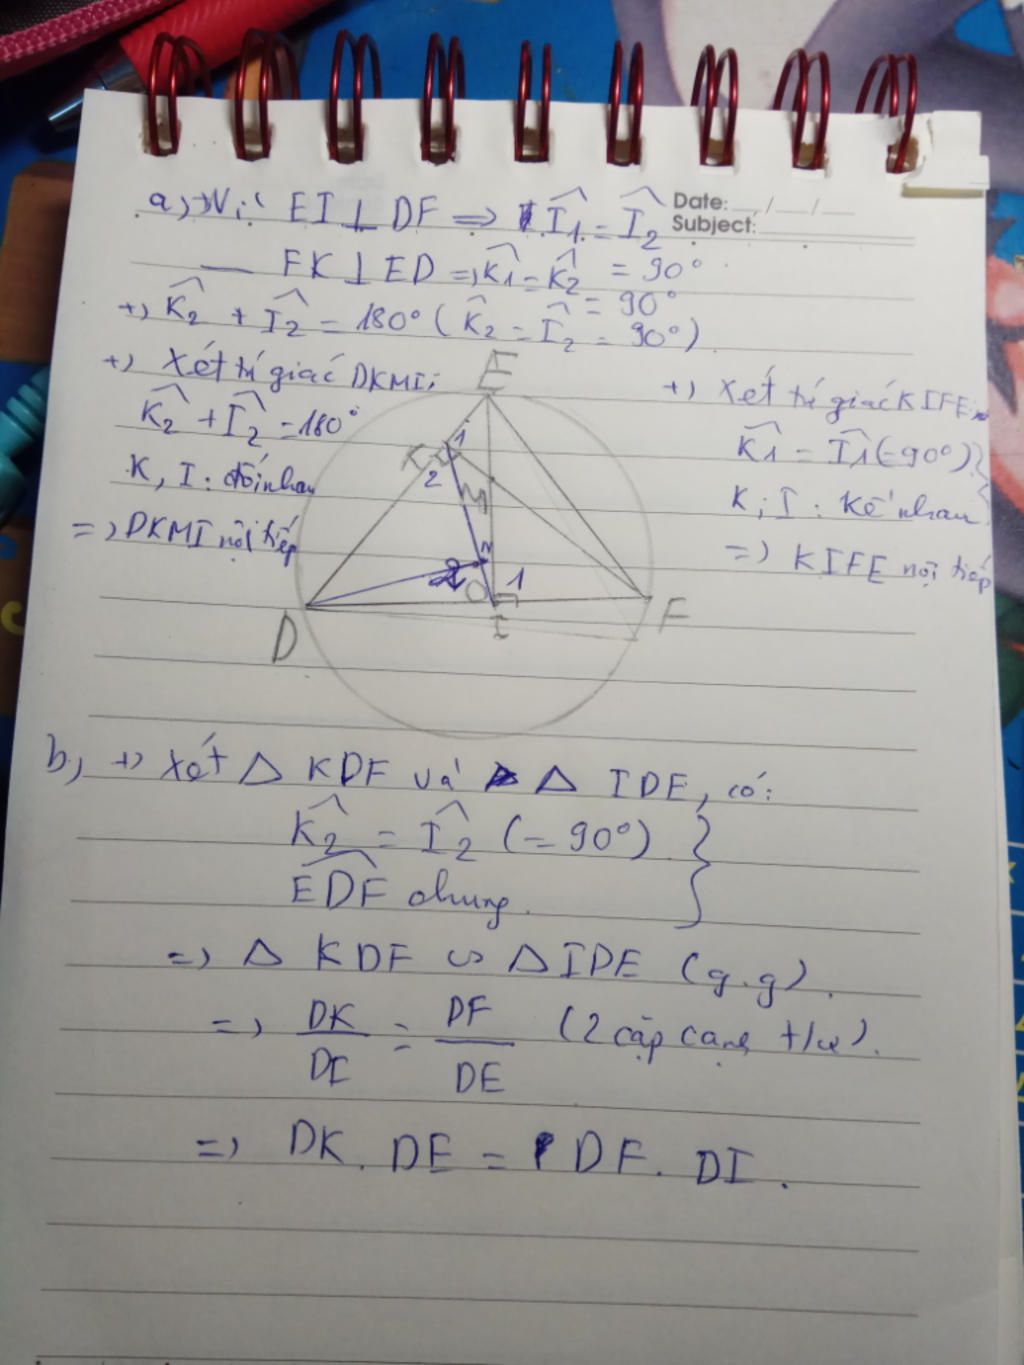 a, +) Vì EI ⊥ DF => Î1 = Î2
Date: __/__/__
Subject:
— FK ⊥ ED => K̂1 = K̂2 = 90°
= 90°
+) K̂2 + Î2 = 180° ( K̂2 = Î2 = 90°)
+) Xét tứ giác DKMI:
K̂2 + Î2 = 180°
K, I : đối nhau
=> DKMI nội tiếp
+) Xét tứ giác KIFE
K̂1 = Î1 (= 90°) }
K ; I : Kề nhau
=> KIFE nội tiếp
E
K
1
2
M
2
2
O
1
D
I
F
b, +) Xét △ KDF và △ IDE, có:
K̂2 = Î2 (= 90°) }
EDF chung.
=> △ KDF ∽ △ IDE (g.g).
=> DK/DI = DF/DE (2 cặp cạnh t/ư).
=> DK . DE = DF . DI .